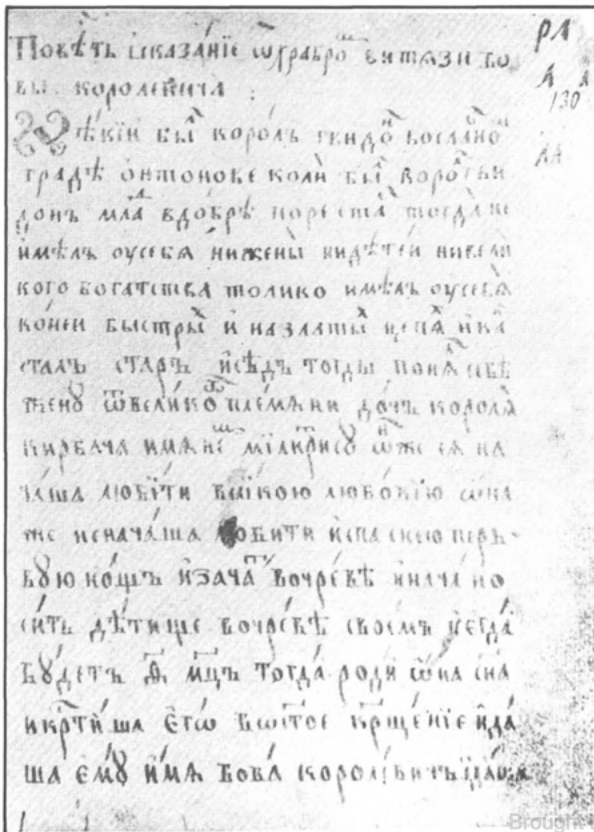 Повѣть и сказанїе ѡ храбро витязи Бо
вы королевича
Нѣкїи бы король гвидо во славно
граде онтонове коли бы коро гви
донъ мла в добрѣ порѣ ста тогда не
имѣлъ оу себя ни жены ни дѣтеи ни вели
кого богатства толико имѣлъ оу себя
конеи быстры и на златы цепя и ка
сталъ старъ и сѣдъ тогды поня себѣ
жену ѿ велико племяни дочь короля
кирбача имяне милитрису ѡ же ея на
чаша любїти великою любовїю ѡна
же не начаша любити и спа с нею перь
вую нощь и зача во чревѣ и нача но
сить дѣтище во чревѣ своемъ и егда
бꙋдетъ ѳ҃ мц҃ъ тогда роди ѡна сн҃а
и крт҃иша его во ст҃ое крщ҃енїе и да
ша емꙋ имя Бова королевитъ
рл
130
Brought